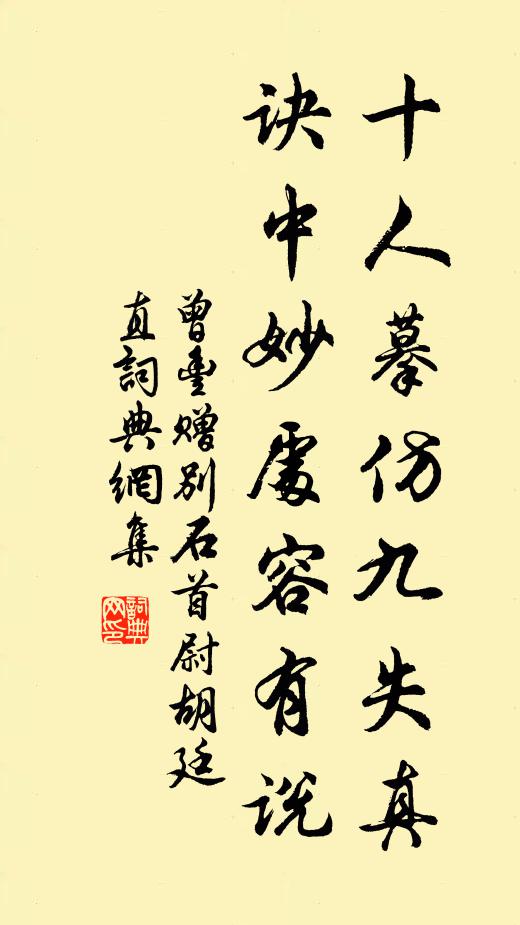 十人摹仿九失真
诀中妙處容有说
曾豐赠别石首尉胡廷
直詞典網集
詞典
网印